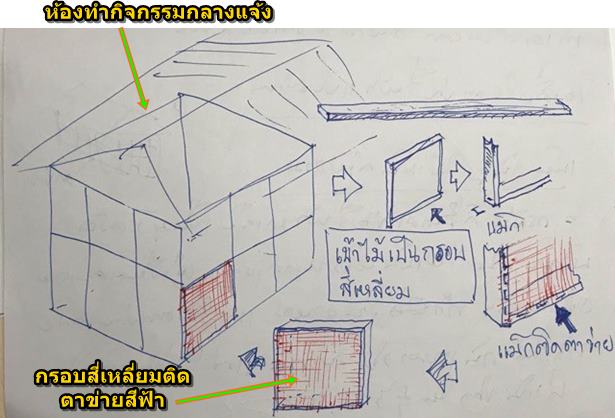 ห้องทำกิจกรรมกลางแจ้ง
แม็ก
เข้าไม้เป็นกรอบ
สี่เหลี่ยม
แม็กติดตาข่าย
กรอบสี่เหลี่ยมติด
ตาข่ายสีฟ้า